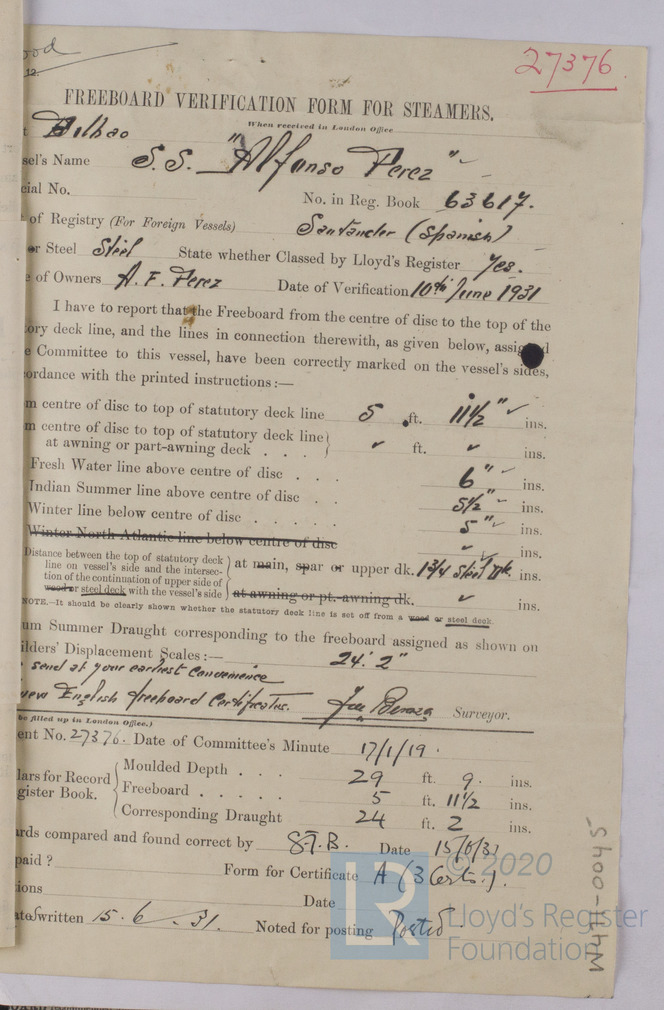 ood
12.
27376.
FREEBOARD VERIFICATION FORM FOR STEAMERS.
When received in London Office
t Bilbao
sel's Name S.S. "Alfonso Perez"
cial No. No. in Reg. Book 63617.
of Registry (For Foreign Vessels) Santander (Spanish)
or Steel Steel State whether Classed by Lloyd's Register Yes.
e of Owners A. F. Perez Date of Verification 10th June 1931
I have to report that the Freeboard from the centre of disc to the top of the
ory deck line, and the lines in connection therewith, as given below, assigned
e Committee to this vessel, have been correctly marked on the vessel's sides,
cordance with the printed instructions:—
m centre of disc to top of statutory deck line 5 ft. 11½" ins.
m centre of disc to top of statutory deck line
at awning or part-awning deck . . . ft. ins.
Fresh Water line above centre of disc . . . 6" ins.
Indian Summer line above centre of disc . . 5½" ins.
Winter line below centre of disc . . . . . 5" ins.
Winter North Atlantic line below centre of disc ins.
Distance between the top of statutory deck
line on vessel's side and the intersec-
tion of the continuation of upper side of
wood or steel deck with the vessel's side
at main, spar or upper dk. 1¾ Steel Dk. ins.
at awning or pt.-awning dk. ins.
NOTE.—It should be clearly shown whether the statutory deck line is set off from a wood or steel deck.
um Summer Draught corresponding to the freeboard assigned as shown on
ilders' Displacement Scales:— 24' 2"
send at your earliest convenience
new English freeboard Certificates. Surveyor.
be filled up in London Office.)
ent No. 27376. Date of Committee's Minute 17/1/19.
lars for Record
gister Book.
Moulded Depth . . . 29 ft. 9. ins.
Freeboard . . . . . 5 ft. 11½ ins.
Corresponding Draught 24 ft. 2 ins.
rds compared and found correct by S.T.B. Date 15/6/31
paid? Form for Certificate A (3 Certs.).
tions Date
ate written 15.6.31. Noted for posting Posted.
LR
© 2020
Lloyd's Register
Foundation
W471-0045